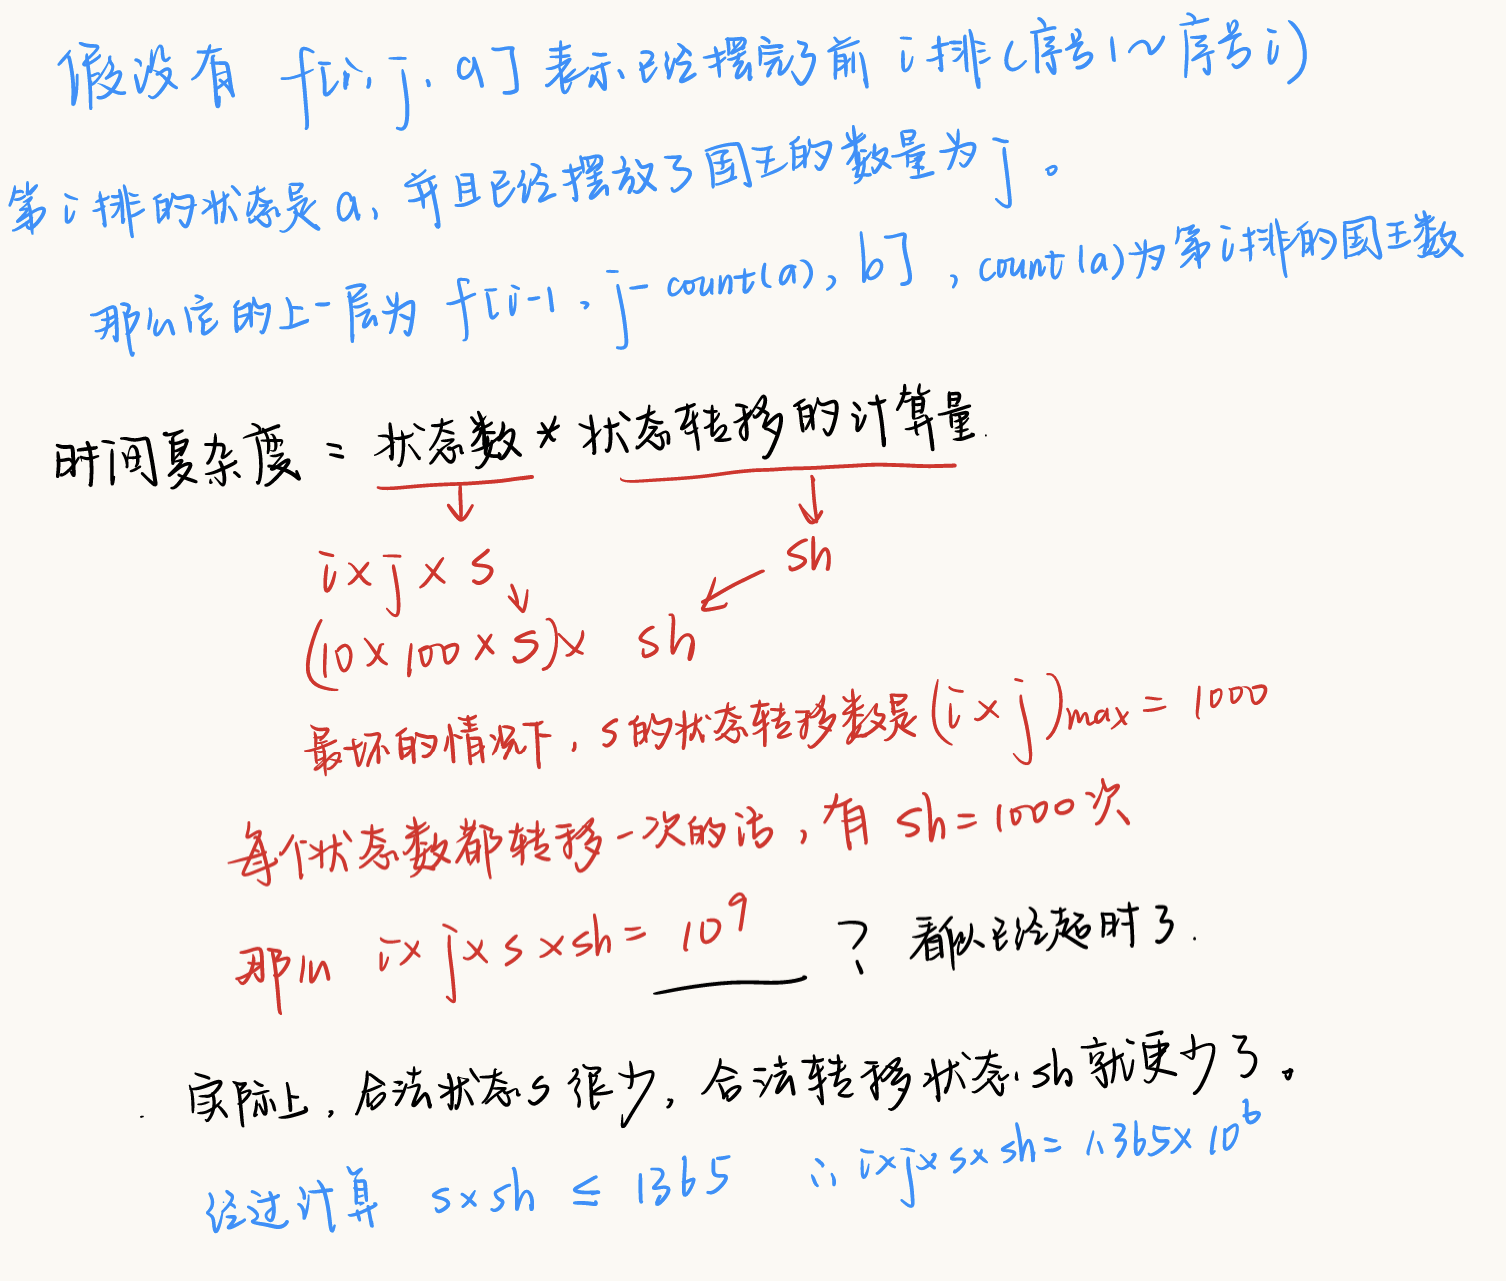 假设有 f[i, j, a] 表示已经摆完了前 i 排(序号1~序号i)
第i排的状态是a, 并且已经摆放了国王的数量为j。
那么它的上一层为 f[i-1, j-count(a), b], count(a)为第i排的国王数
时间复杂度 = 状态数 * 状态转移的计算量.
i×j×s sh
(10×100×s)× sh
最坏的情况下, s的状态转移数是(i×j)max=1000
每个状态数都转移一次的话, 有 sh=1000次
那么 i×j×s×sh= 10⁹ ? 看似已经超时了.
实际上, 合法状态s很少, 合法转移状态sh就更少了。
经过计算 s×sh ≤ 1365 ∴ i×j×s×sh=1.365×10⁶